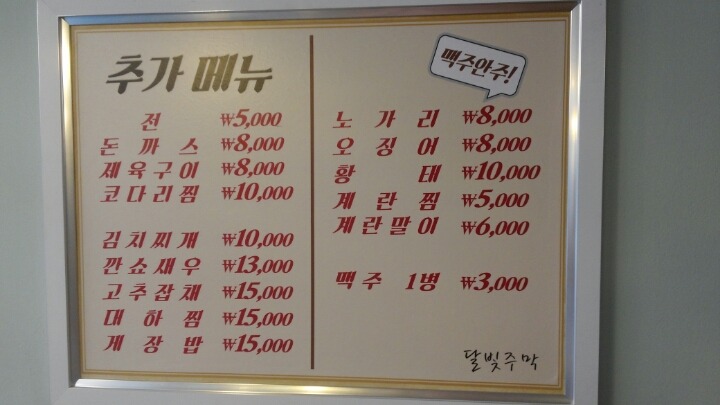 추가 메뉴
전 ₩5,000
돈까스 ₩8,000
제육구이 ₩8,000
코다리찜 ₩10,000
김치찌개 ₩10,000
깐쇼새우 ₩13,000
고추잡채 ₩15,000
대하찜 ₩15,000
게장밥 ₩15,000
맥주안주!
노가리 ₩8,000
오징어 ₩8,000
황태 ₩10,000
계란찜 ₩5,000
계란말이 ₩6,000
맥주 1병 ₩3,000
달빛주막